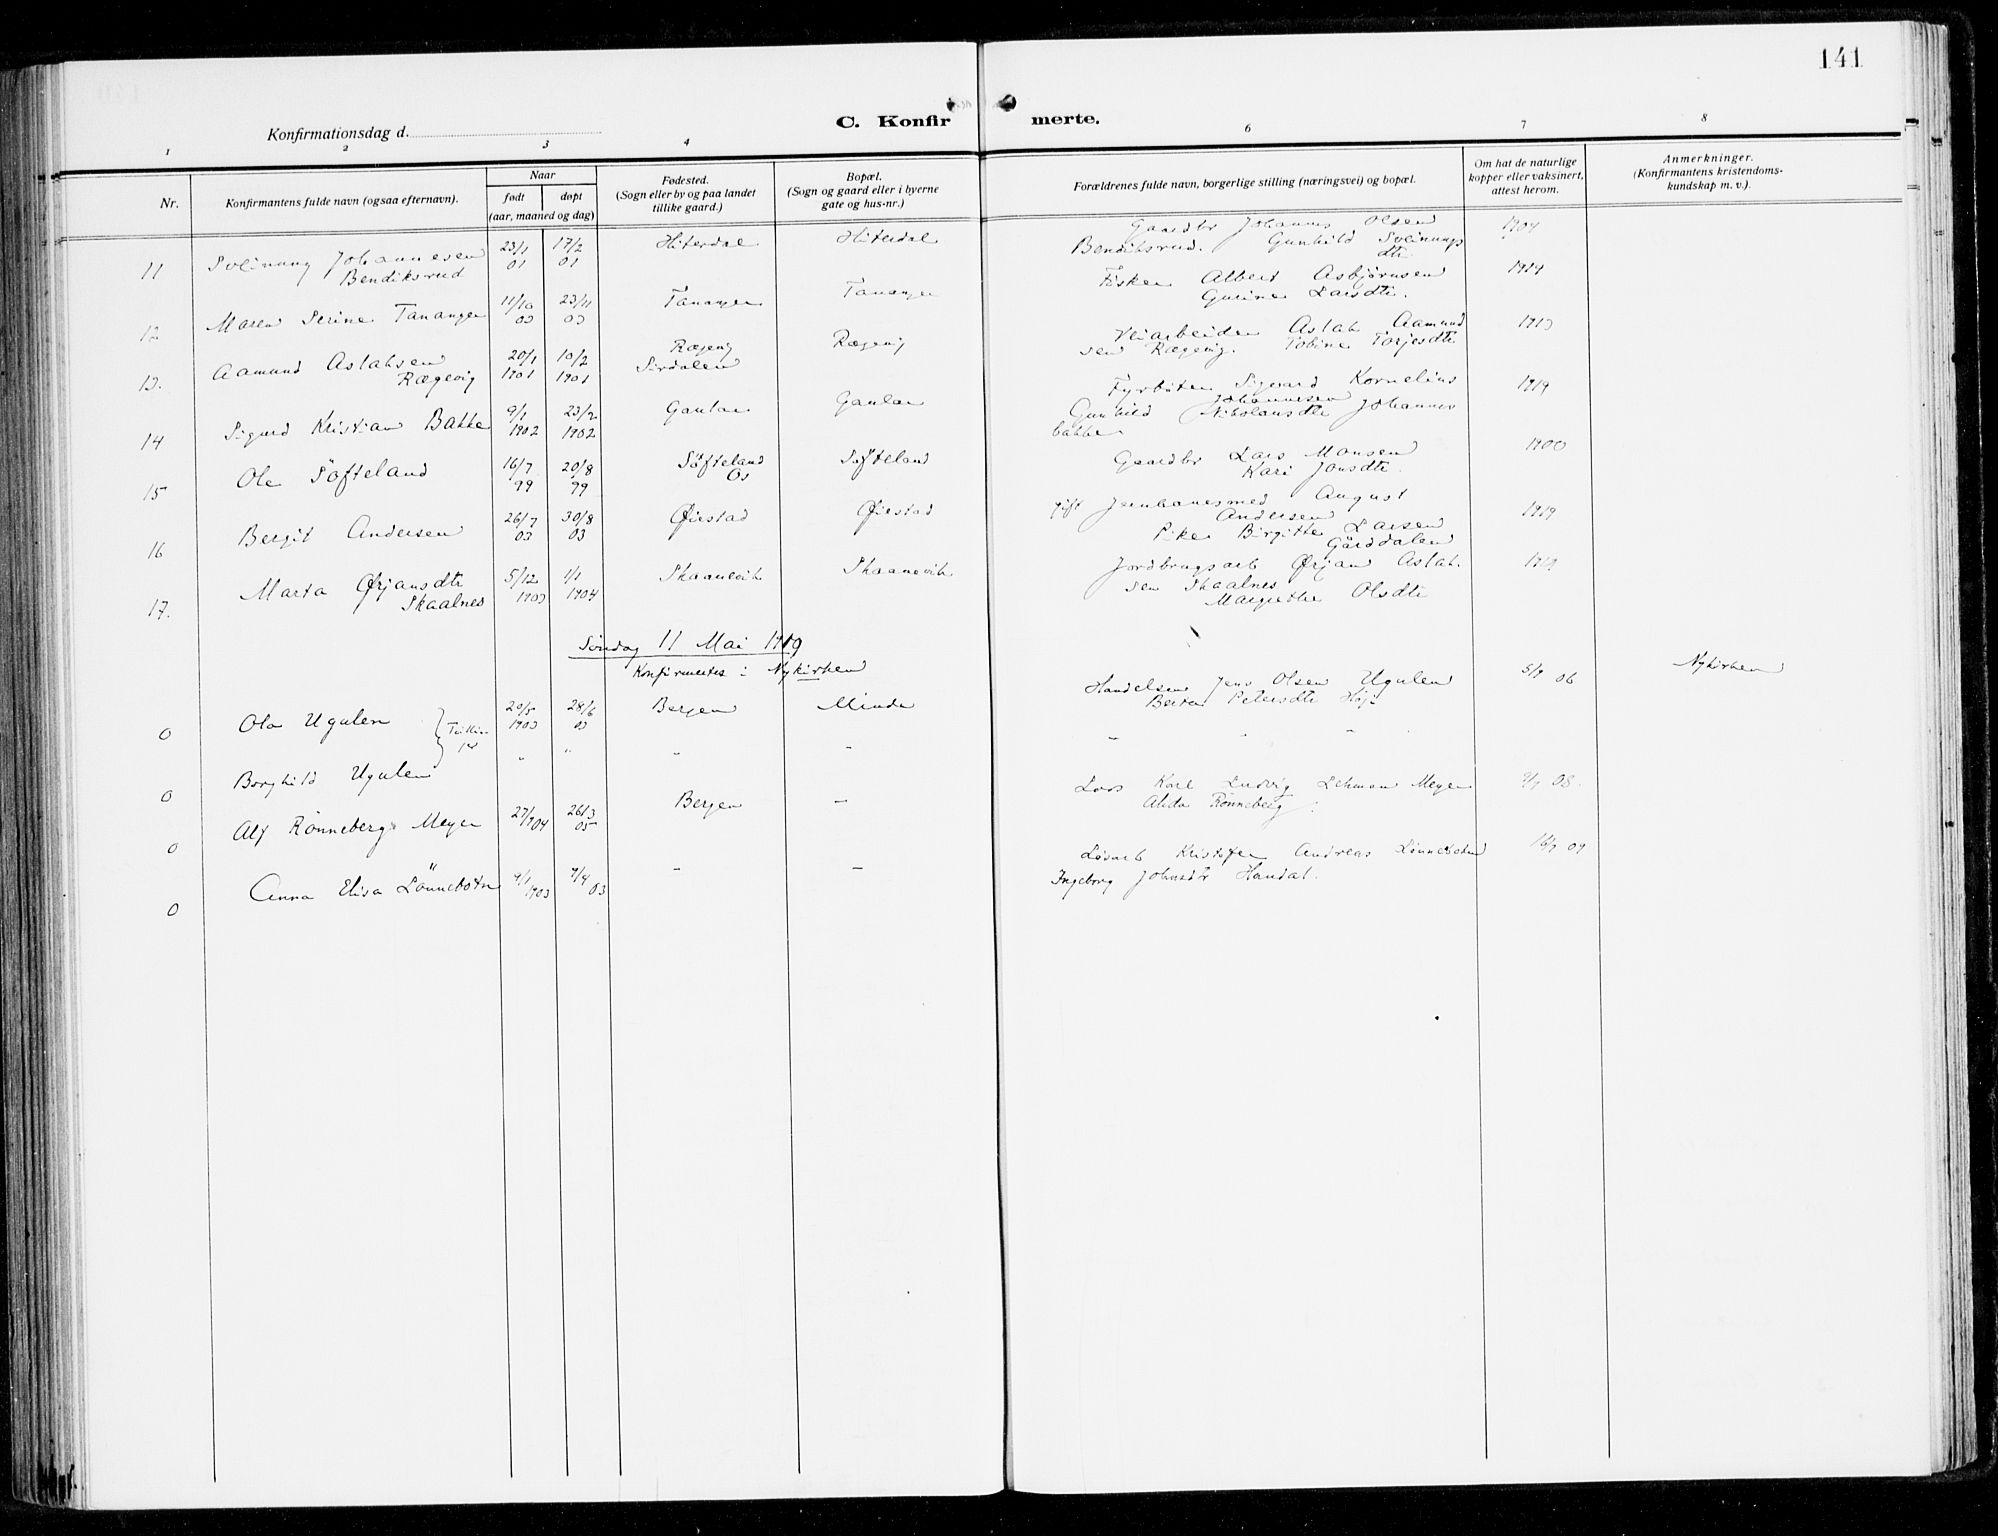 141
C. Konfirmerte.
Konfirmationsdag d.
1 2 3 4 6 7 8
Nr.
Konfirmantens fulde navn (ogsaa efternavn).
Naar
født døpt
(aar, maaned og dag)
Fødested.
(Sogn eller by og paa landet
tillike gaard.)
Bopæl.
(Sogn og gaard eller i byerne
gate og hus-nr.)
Forældrenes fulde navn, borgerlige stilling (næringsvei) og bopæl.
Om hat de naturlige
kopper eller vaksinert,
attest herom.
Anmerkninger.
(Konfirmantens kristendoms-
kundskap m. v.).
11 Sveinung Johannesen 23/1 17/2 Hiterdal Hiterdal Gaardbr Johannes Olsen 1904
Bendiksrud 01 01 Bendiksrud. Gunhild Sveinungs
dtr
12 Maren Serine Tananger 11/10 23/11 Tananger Tananger Fisker Albert Asbjørnsen 1919
03 03 Gurine Larsdtr.
13. Aamund Aslaksen 20/1 10/2 Rægevig Rægevig Veiarbeider Aslak Aamund 1913
Rægevig 1901 1901 Sirdalen sen Rægevig. Tobine Torjesdtr
14 Sigurd Kristian Bakke 9/1 23/2 Gaular Gaular Fyrbøter Sigvard Kornelius 1919
1902 1902 Johannesen
Gunhild Nikolausdtr Johannes
bakke
15 Ole Söfteland 16/7 20/8 Söfteland Søfteland Gaardbr Lars Monsen 1900
99 99 Os Kari Jonsdtr.
16 Bergit Andersen 26/7 30/8 Øiestad Øiestad gift Jernbanesmed August 1919
03 03 Andersen
Pike Birgitte Larsen
Gårddalen
17. Marta Ørjansdtr 5/12 1/1 Skaanevik Skaanevik Jordbrugsarb Ørjan Aslak 1919
Skaalnes 1903 1904 sen Skaalnes
Margrethe Olsdtr
Søndag 11 Mai 1919
Konfirmertes i Nykirken
0 Ola Ugulen 20/5 28/6 Bergen Minde Handelsm Jens Olsen Ugulen 5/9 06 Nykirken
1903 03 Berta Petersdtr
0 Borghild Ugulen " " " " " " "
0 Alf Rönneberg Meyer 27/9 04 26/3 05 Bergen — Loos Karl Ludvig Lehman Meyer 9/9 08.
Alida Rönneberg
0 Anna Elisa Lönnebotn 9/1 1903 9/4 03 — — Løsarb Kristofer Andreas Lönnebotn 16/9 09
Ingeborg Johnsdtr Handal.